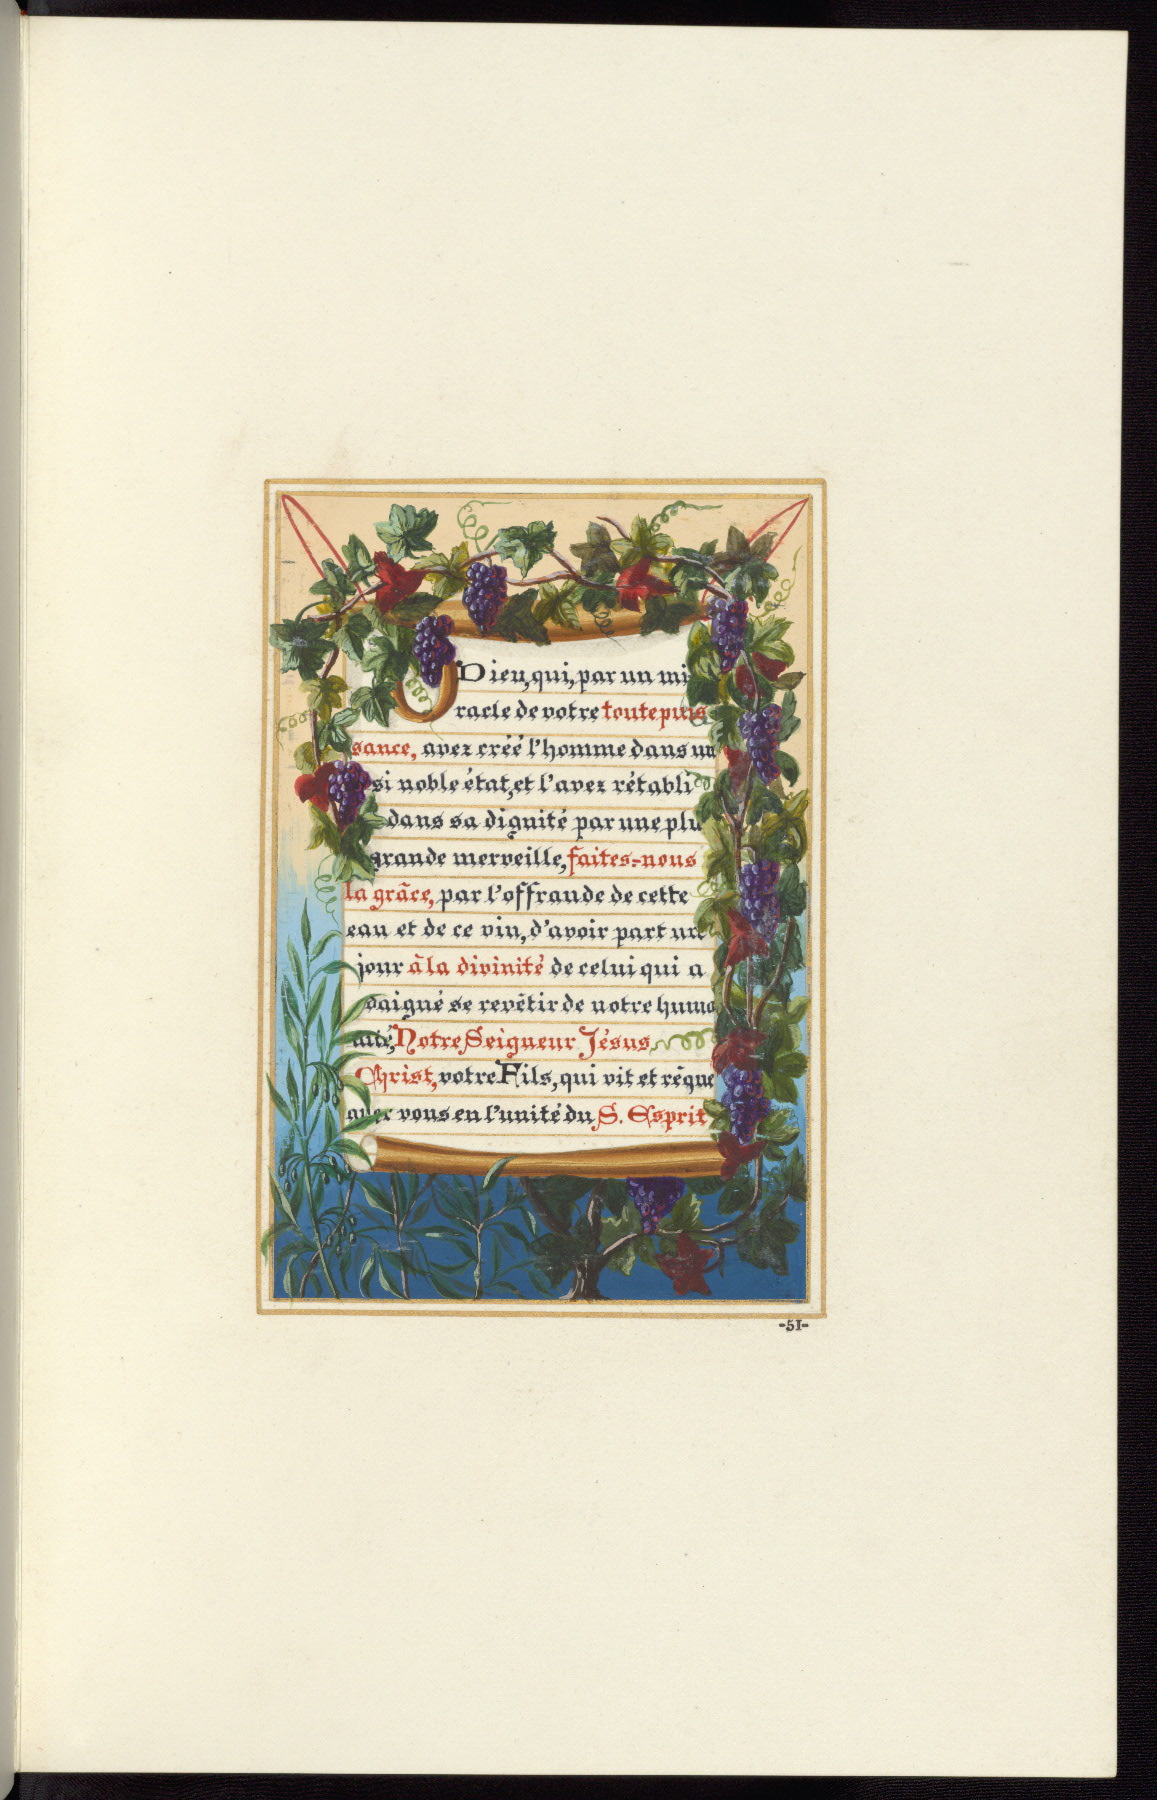 O Dieu, qui, par un mi
racle de votre toute puis
sance, avez créé l'homme dans un
si noble état, et l'avez rétabli
dans sa dignité par une plu
grande merveille, faites-nous
la grâce, par l'offrande de cette
eau et de ce vin, d'avoir part un
jour à la divinité de celui qui a
daigné se revêtir de notre huma
nité, Notre Seigneur Jésus
Christ, votre Fils, qui vit et règne
avec vous en l'unité du S. Esprit
-51-